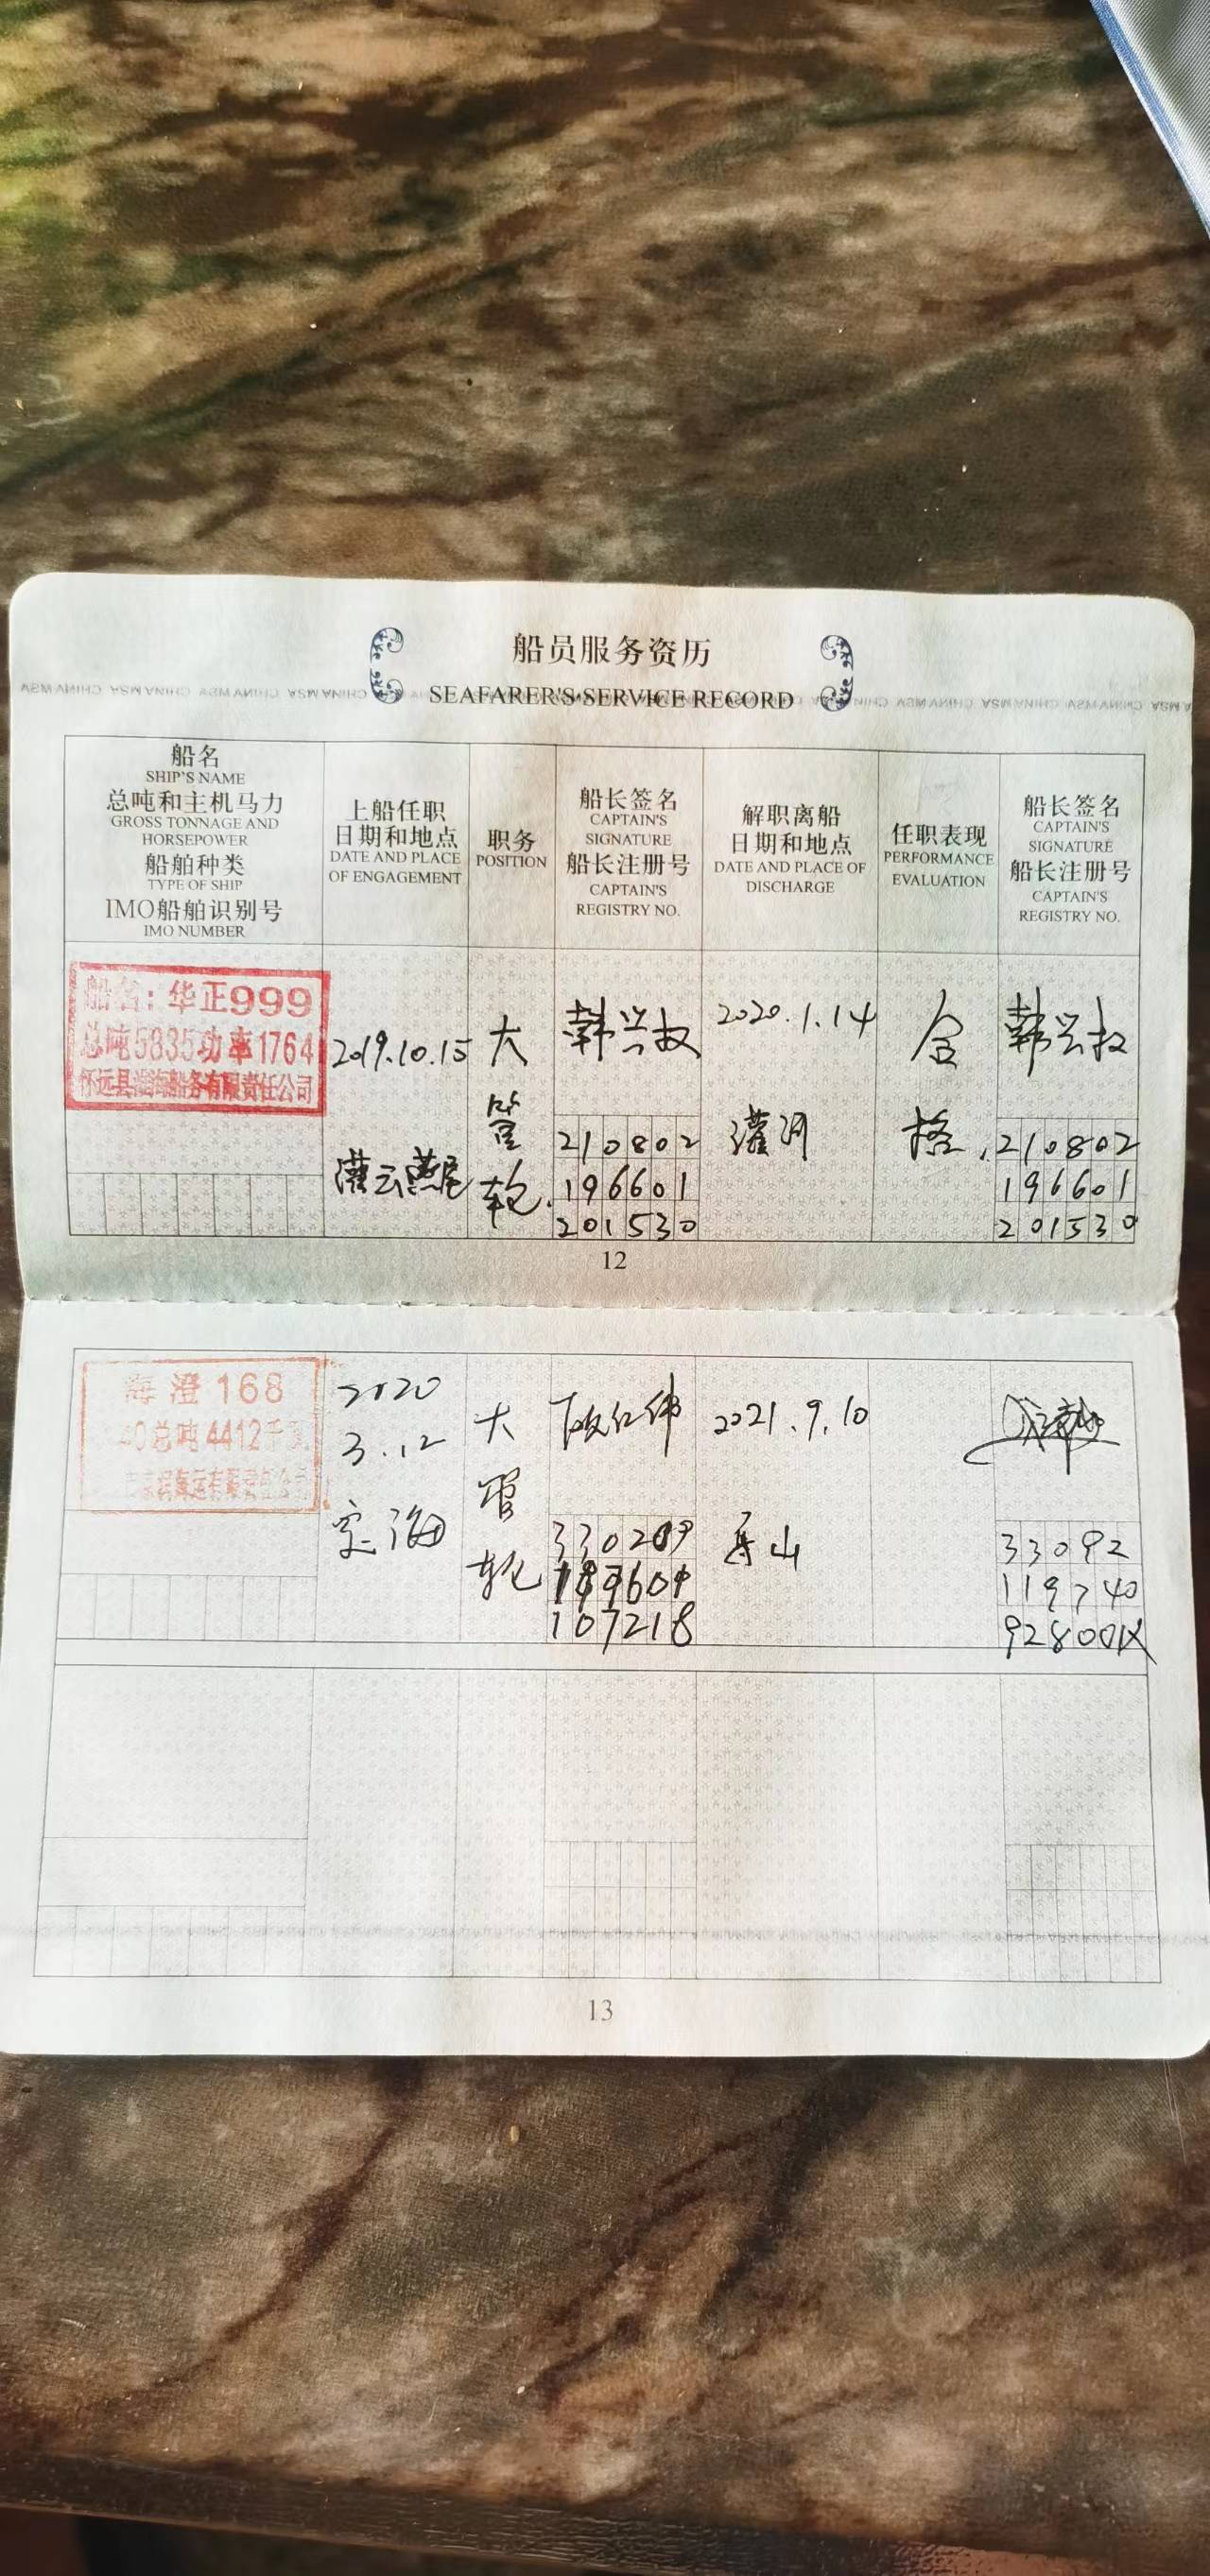 船员服务资历
SEAFARER'S SERVICE RECORD
船名
SHIP'S NAME
总吨和主机马力
GROSS TONNAGE AND
HORSEPOWER
船舶种类
TYPE OF SHIP
IMO船舶识别号
IMO NUMBER
上船任职
日期和地点
DATE AND PLACE
OF ENGAGEMENT
职务
POSITION
船长签名
CAPTAIN'S
SIGNATURE
船长注册号
CAPTAIN'S
REGISTRY NO.
解职离船
日期和地点
DATE AND PLACE OF
DISCHARGE
任职表现
PERFORMANCE
EVALUATION
船长签名
CAPTAIN'S
SIGNATURE
船长注册号
CAPTAIN'S
REGISTRY NO.
船名:华正999
总吨5835功率1764
怀远县海船务有限责任公司
2019.10.15
灌云燕尾
大
管
轮.
韩兴
210802
196601
201530
2020.1.14
灌河
合
格.
韩兴
210802
196601
201530
12
海澄168
总吨4412千瓦
海运有限责任公司
2020
3.12
定海
大
管
轮
仁伟
107218
2021.9.10
山
33092
119740
92800
13